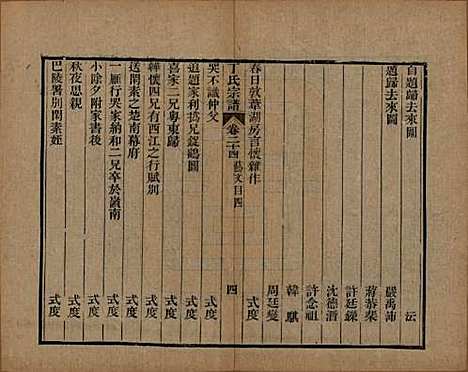 自題歸去來圖 沄
題歸去來圖 嚴禹沛
蔣恭棐
許廷鑅
沈德潛
許念祖
韓騏
周廷燮
春日敦華湖房言懷雜作 式度
丁氏宗譜 卷二十四 藝文目四 四
哭不識仲父 式度
追題家利撝兄錠鶴圖 式度
喜家二兄粵東歸 式度
鞾懷四兄有西江之行賦別 式度
送閑素之楚南幕府 式度
一雁行哭家納和二兄卒於嶺南 式度
小除夕附家書後 式度
秋夜思親 式度
巴陵署別閑素姪 式度